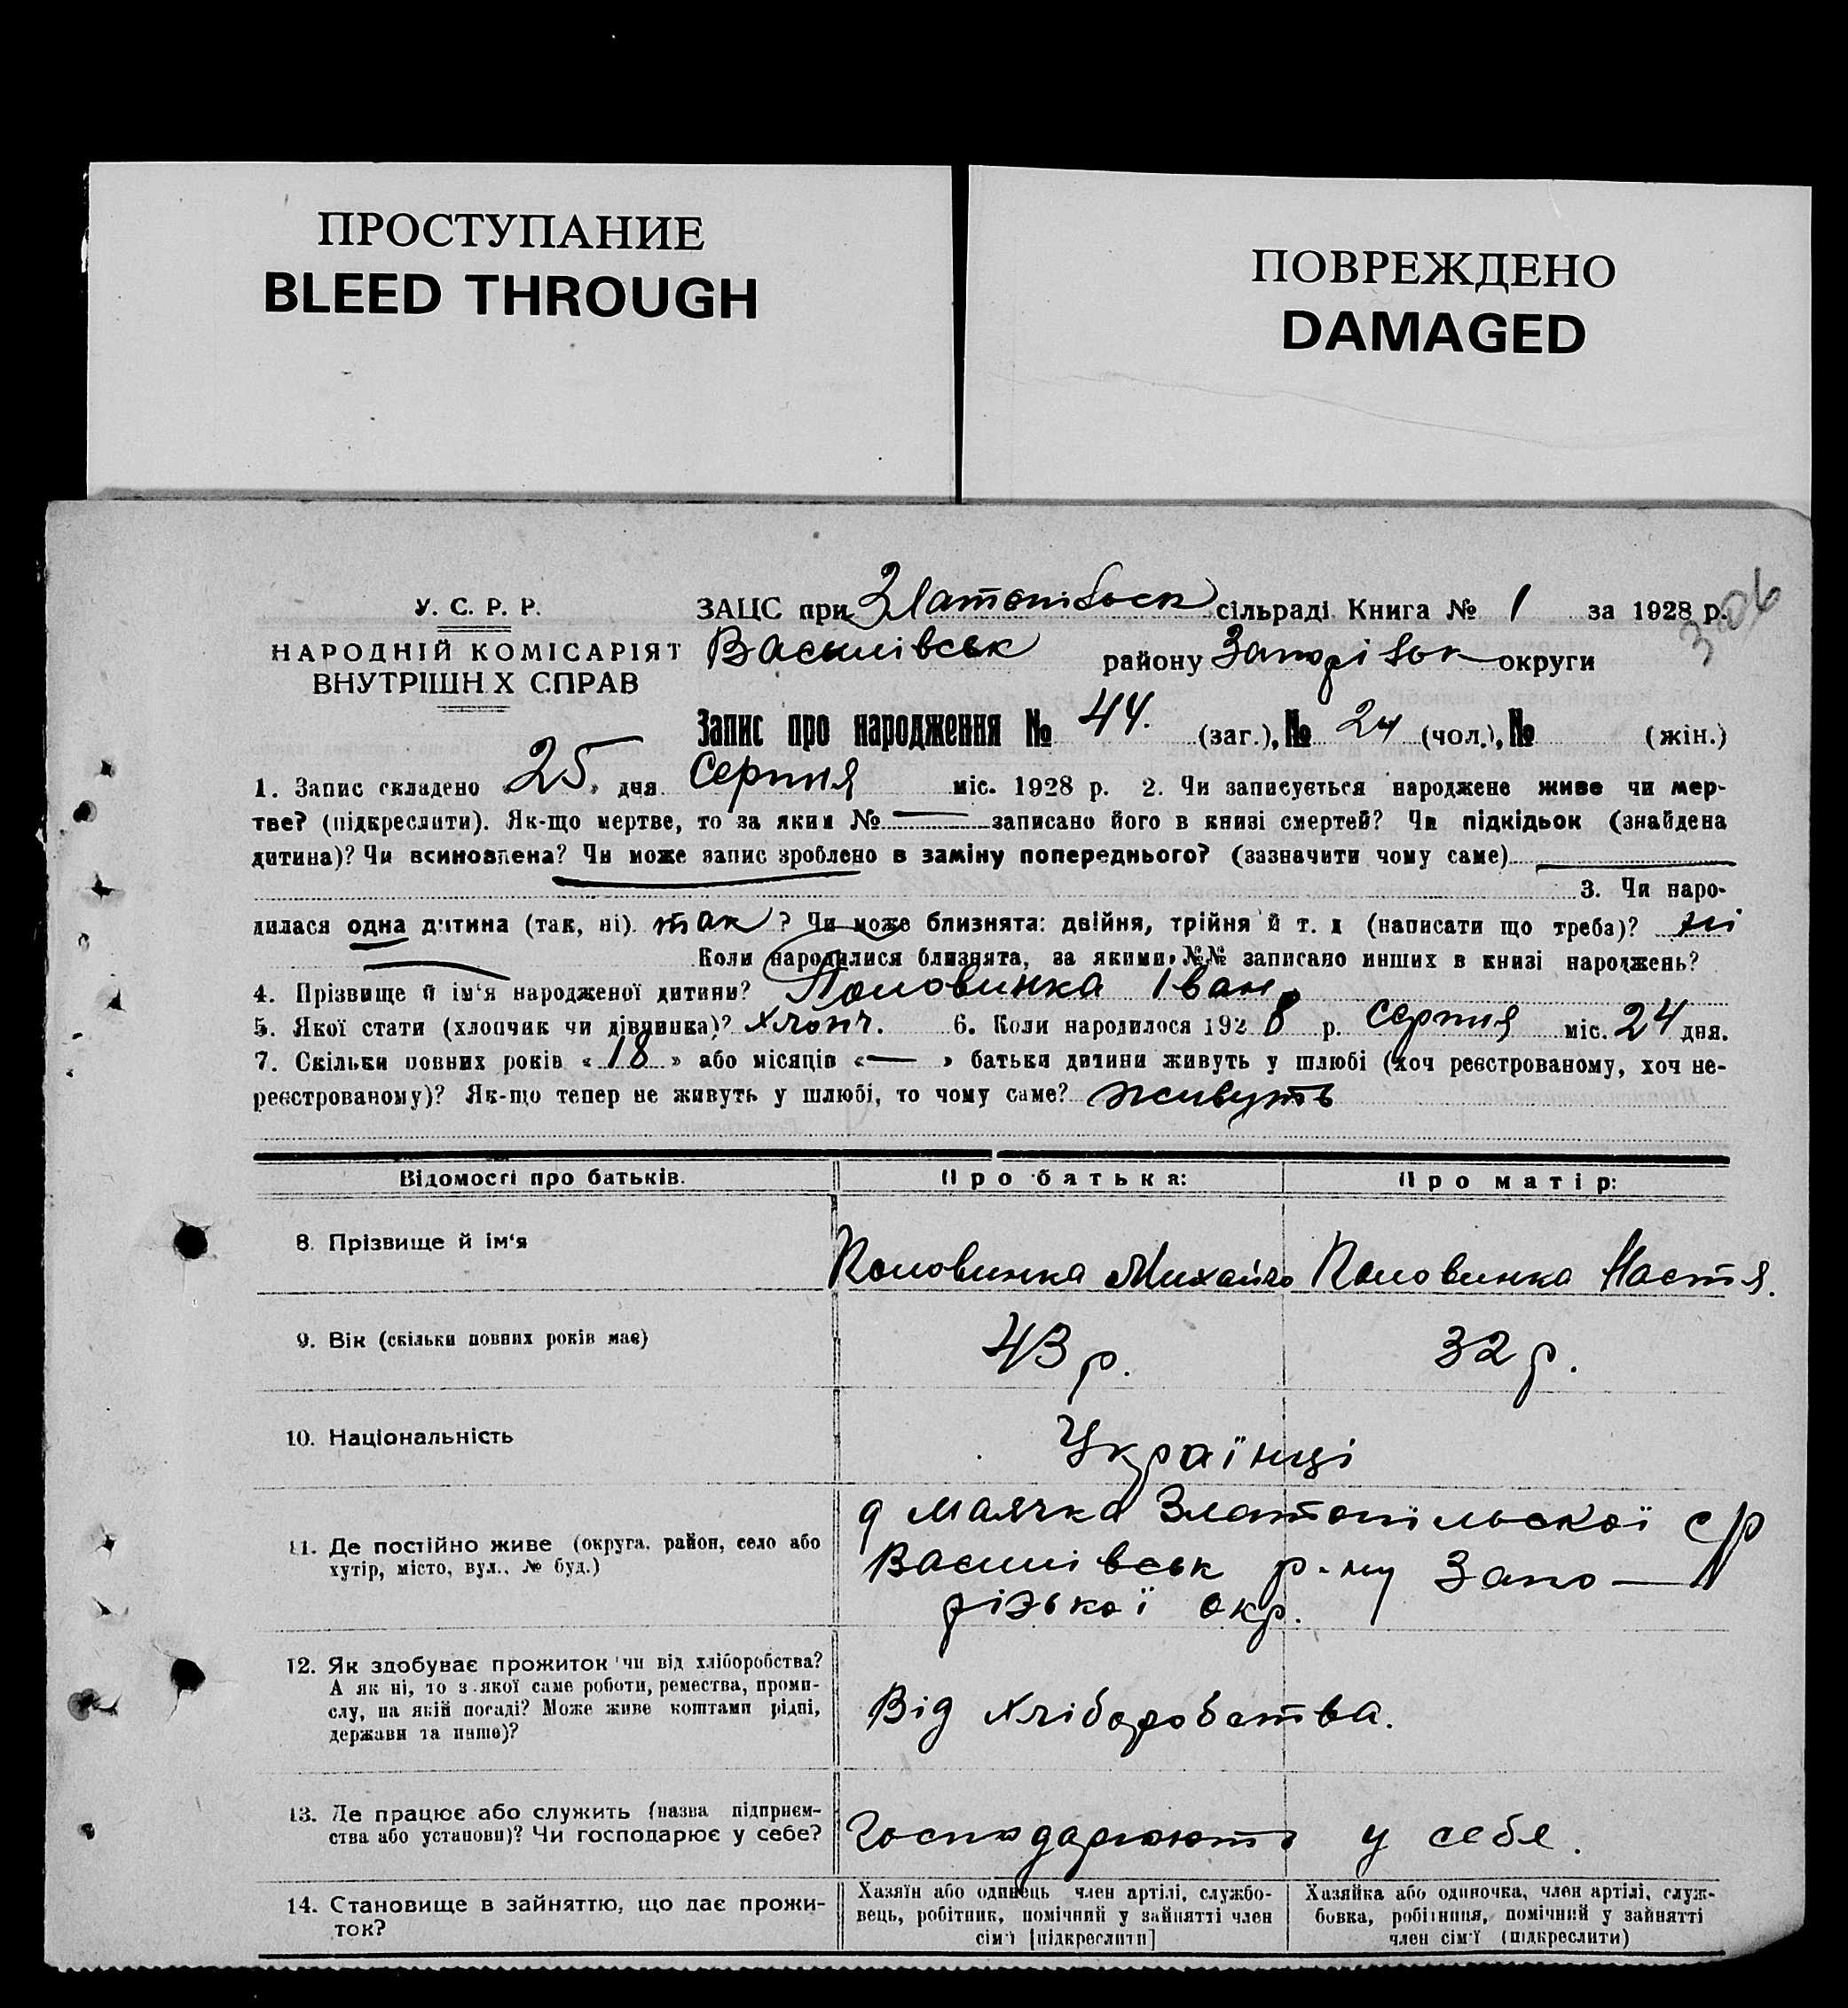 ПРОСТУПАНИЕ
BLEED THROUGH
ПОВРЕЖДЕНО
DAMAGED
306
У. С. Р. Р.
НАРОДНІЙ КОМІСАРІЯТ
ВНУТРІШН Х СПРАВ
ЗАЦС при Златопільськ сільраді Книга № 1 за 1928 р.
Васылівськ району Запоріськ округи
Запис про народження № 44. (заг.), № 24 (чол.), № (жін.)
1. Запис складено « 25 » дня Серпня міс. 1928 р. 2. Чи записується народжене живе чи мер-
тве? (підкреслити). Як-що мертве, то за яким № — записано його в книзі смертей? Чи підкідьок (знайдена
дитина)? Чи всиновлена? Чи може запис зроблено в заміну попереднього? (зазначити чому саме) —
3. Чи наро-
дилася одна дитина (так, ні) так ? Чи може близнята: двійня, трійня й т. д (написати що треба)? ні
Коли народилися близнята, за якими №№ записано инших в книзі народжень?
4. Прізвище й ім'я народженої дитини? Половинка Іван
5. Якої стати (хлопчик чи дівчинка)? хлопч. 6. Коли народилося 1928 р. серпня міс. 24 дня.
7. Скільки повних років « 18 » або місяців « — » батьки дитини живуть у шлюбі (хоч реєстрованому, хоч не-
реєстрованому)? Як-що тепер не живуть у шлюбі, то чому саме? живуть
Відомості про батьків. Про батька: Про матір:
8. Прізвище й ім'я Половинка Михайло Половинка Настя.
9. Вік (скільки повних років має) 43 р. 32 р.
10. Національність Українці
11. Де постійно живе (округа, район, село або
хутір, місто, вул., № буд.)
д Маячка Златопільскої с/р
Васылівськ р-ну Запо-
різької окр.
12. Як здобуває прожиток чи від хліборобства?
А як ні, то з якої саме роботи, ремества, проми-
слу, на якій посаді? Може живе коштами рідні,
держави та инше)?
Від хліборобства.
13. Де працює або служить (назва підприєм-
ства або установи)? Чи господарює у себе?
Господарюють у себе.
14. Становище в зайняттю, що дає прожи-
ток?
Хазяїн або одинець член артілі, службо-
вець, робітник, помічний у зайнятті член
сім'ї [підкреслити]
Хазяйка або одиночка, член артілі, служ-
бовка, робітниця, помічний у зайнятті
член сім'ї (підкреслити)